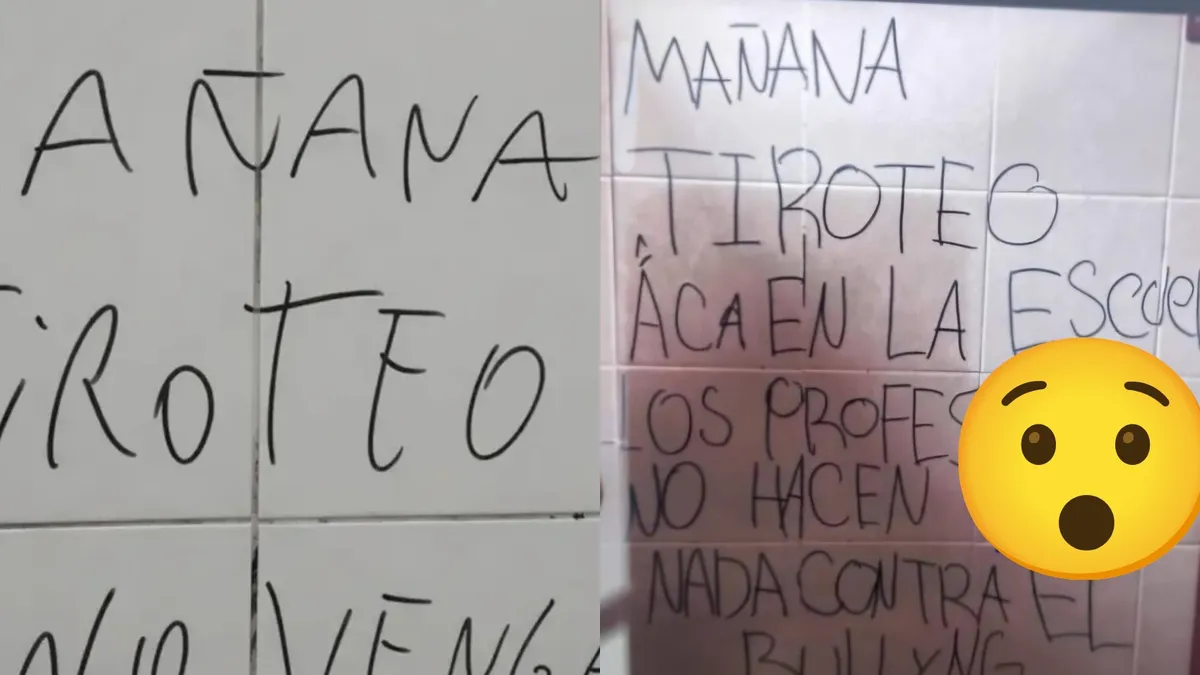 AÑANA
TIROTEO
NO VENGA
MAÑANA
TIROTEO
ACA EN LA ESCUEL
LOS PROFES
NO HACEN
NADA CONTRA EL
BULLYNG